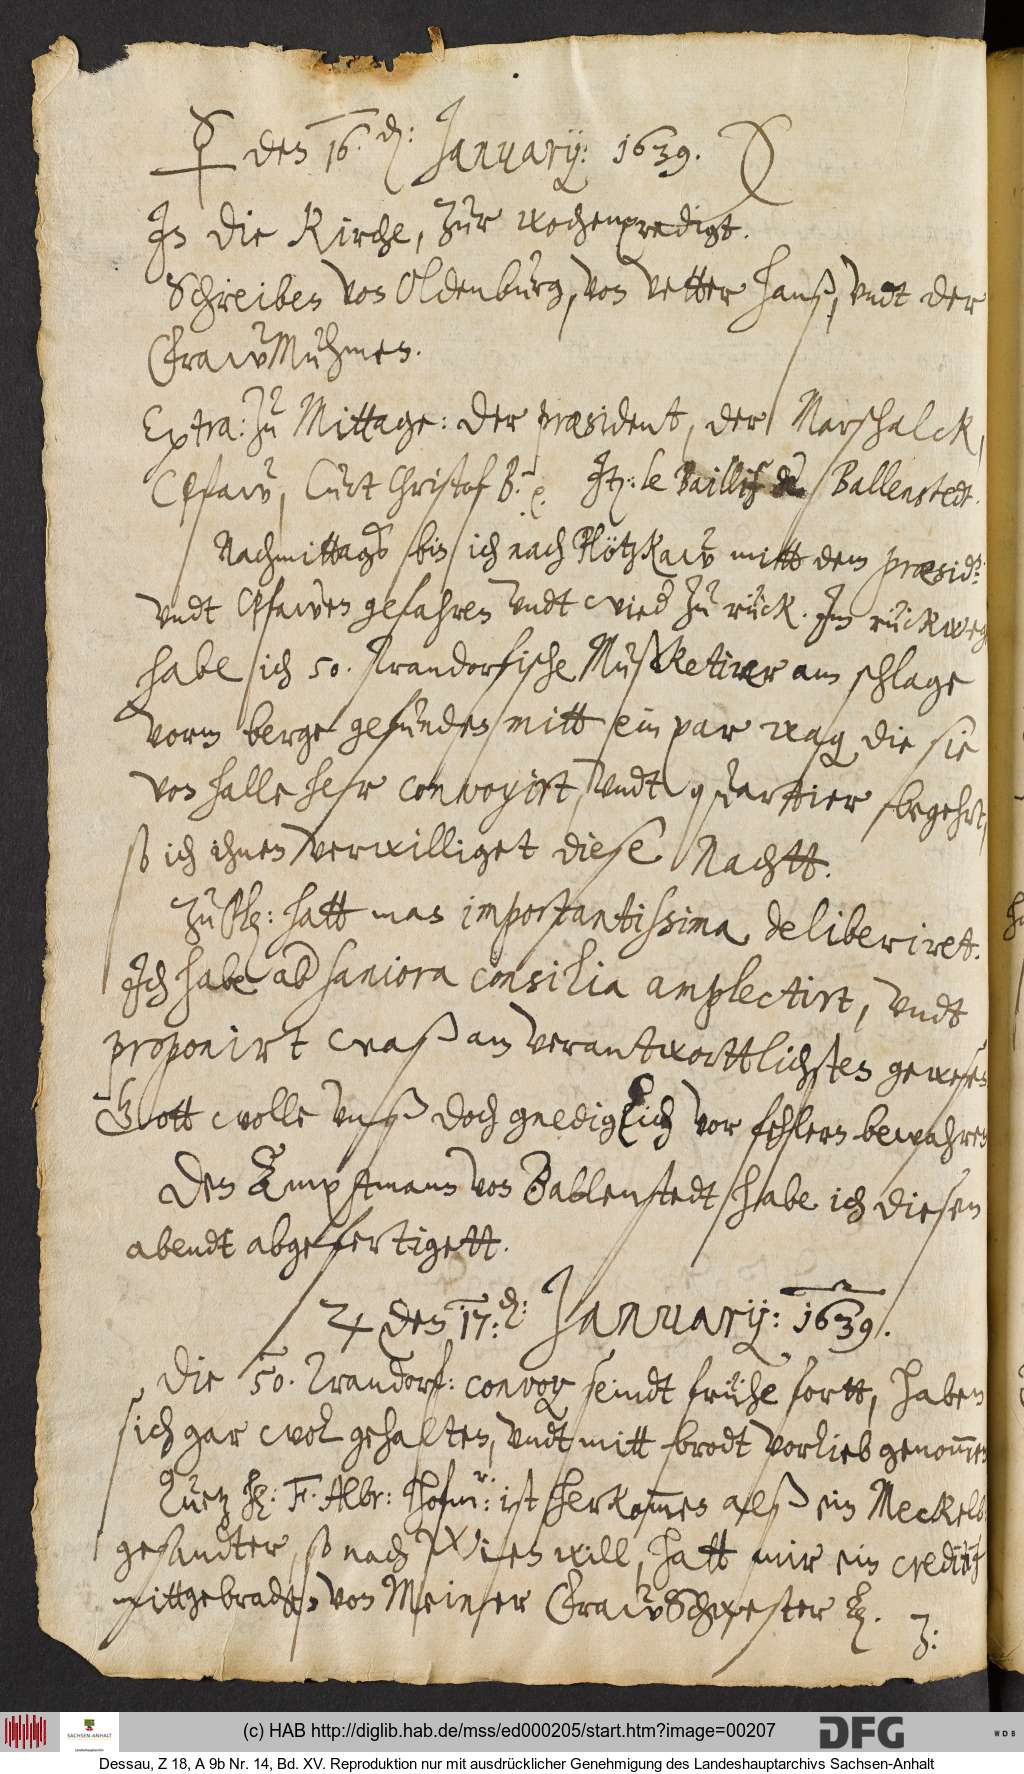 ☿ den 16. d: January: 1639.
In die Kirche, zur wochenpredigt.
Schreiben von Oldenburg, von vetter Hanß, vndt der
Fraw Muhmen.
Extra: zu Mittage: der præsident, der Marschalck,
Curt Christof B. Jt: le Baillif de Ballenstedt.
Nachmittags bin ich nach Plötzkaw mitt dem præsid:
vndt gefahren vndt wied zu rück. Im rückweg
habe ich 50. Musketirer am schlage
vorm berge gefunden mitt ein par wag die sie
von halle hehr convoyirt, vndt quartier begehrt,
so ich ihnen verwilliget diese Nachtt.
Zu Pl: hatt man importantissima deliberiret.
Ich habe ad saniora consilia amplectirt, vndt
proponirt waß am verantwortlichsten gewesen
Gott wolle vnß doch gnediglich vor fehlern bewahren
Den Amptmann von Ballenstedt habe ich diesen
abendt abgefertigett.
♃ den 17. d: January: 1639.
Die 50. convoy seindt frühe fortt, haben
sich gar wol gehalten, vndt mitt brodt vorlieb genommen
H: F. Albr: Hofmr: ist herkommen alß ein Meckelb:
gesandter, so nach Wien will, hatt mir ein creditif
mittgebracht, von Meiner Fraw Schwester
(c) HAB http://diglib.hab.de/mss/ed000205/start.htm?image=00207
SACHSEN-ANHALT
DFG
WDB
Dessau, Z 18, A 9b Nr. 14, Bd. XV. Reproduktion nur mit ausdrücklicher Genehmigung des Landeshauptarchivs Sachsen-Anhalt